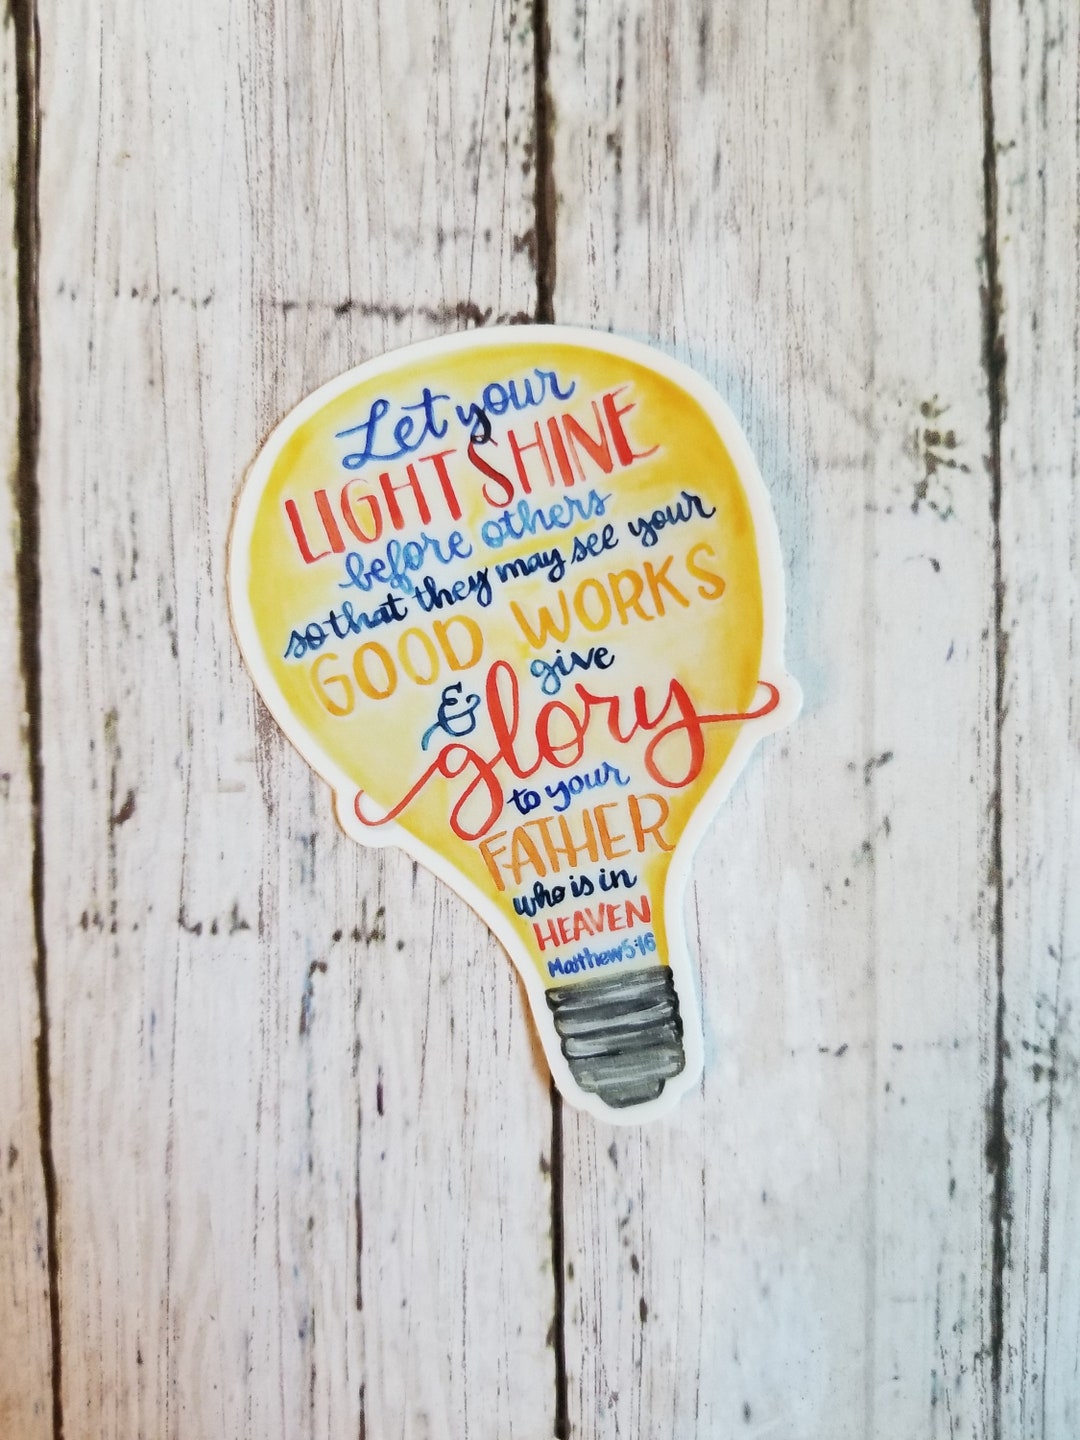 Let your
LIGHT SHINE
before others
so that they may see your
GOOD WORKS
& give
glory
to your
FATHER
who is in
HEAVEN
Matthew 5:16